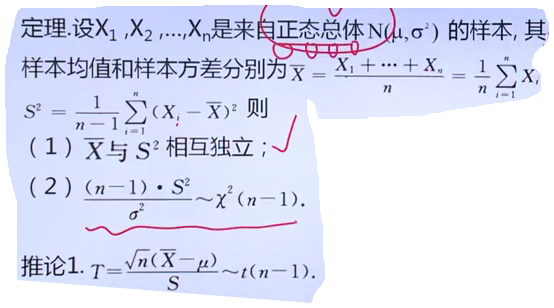 定理.设X₁ ,X₂ ,...,Xₙ是来自正态总体 N(μ,σ²) 的样本, 其
样本均值和样本方差分别为 X̄ = (X₁ + ⋯ + Xₙ)/n = 1/n ∑ᵢ₌₁ⁿ Xᵢ
S² = 1/(n−1) ∑ᵢ₌₁ⁿ (Xᵢ − X̄)² 则
(1) X̄ 与 S² 相互独立;
(2) (n−1)·S²/σ² ~ χ²(n−1).
推论1. T = √n(X̄−μ)/S ~ t(n−1).